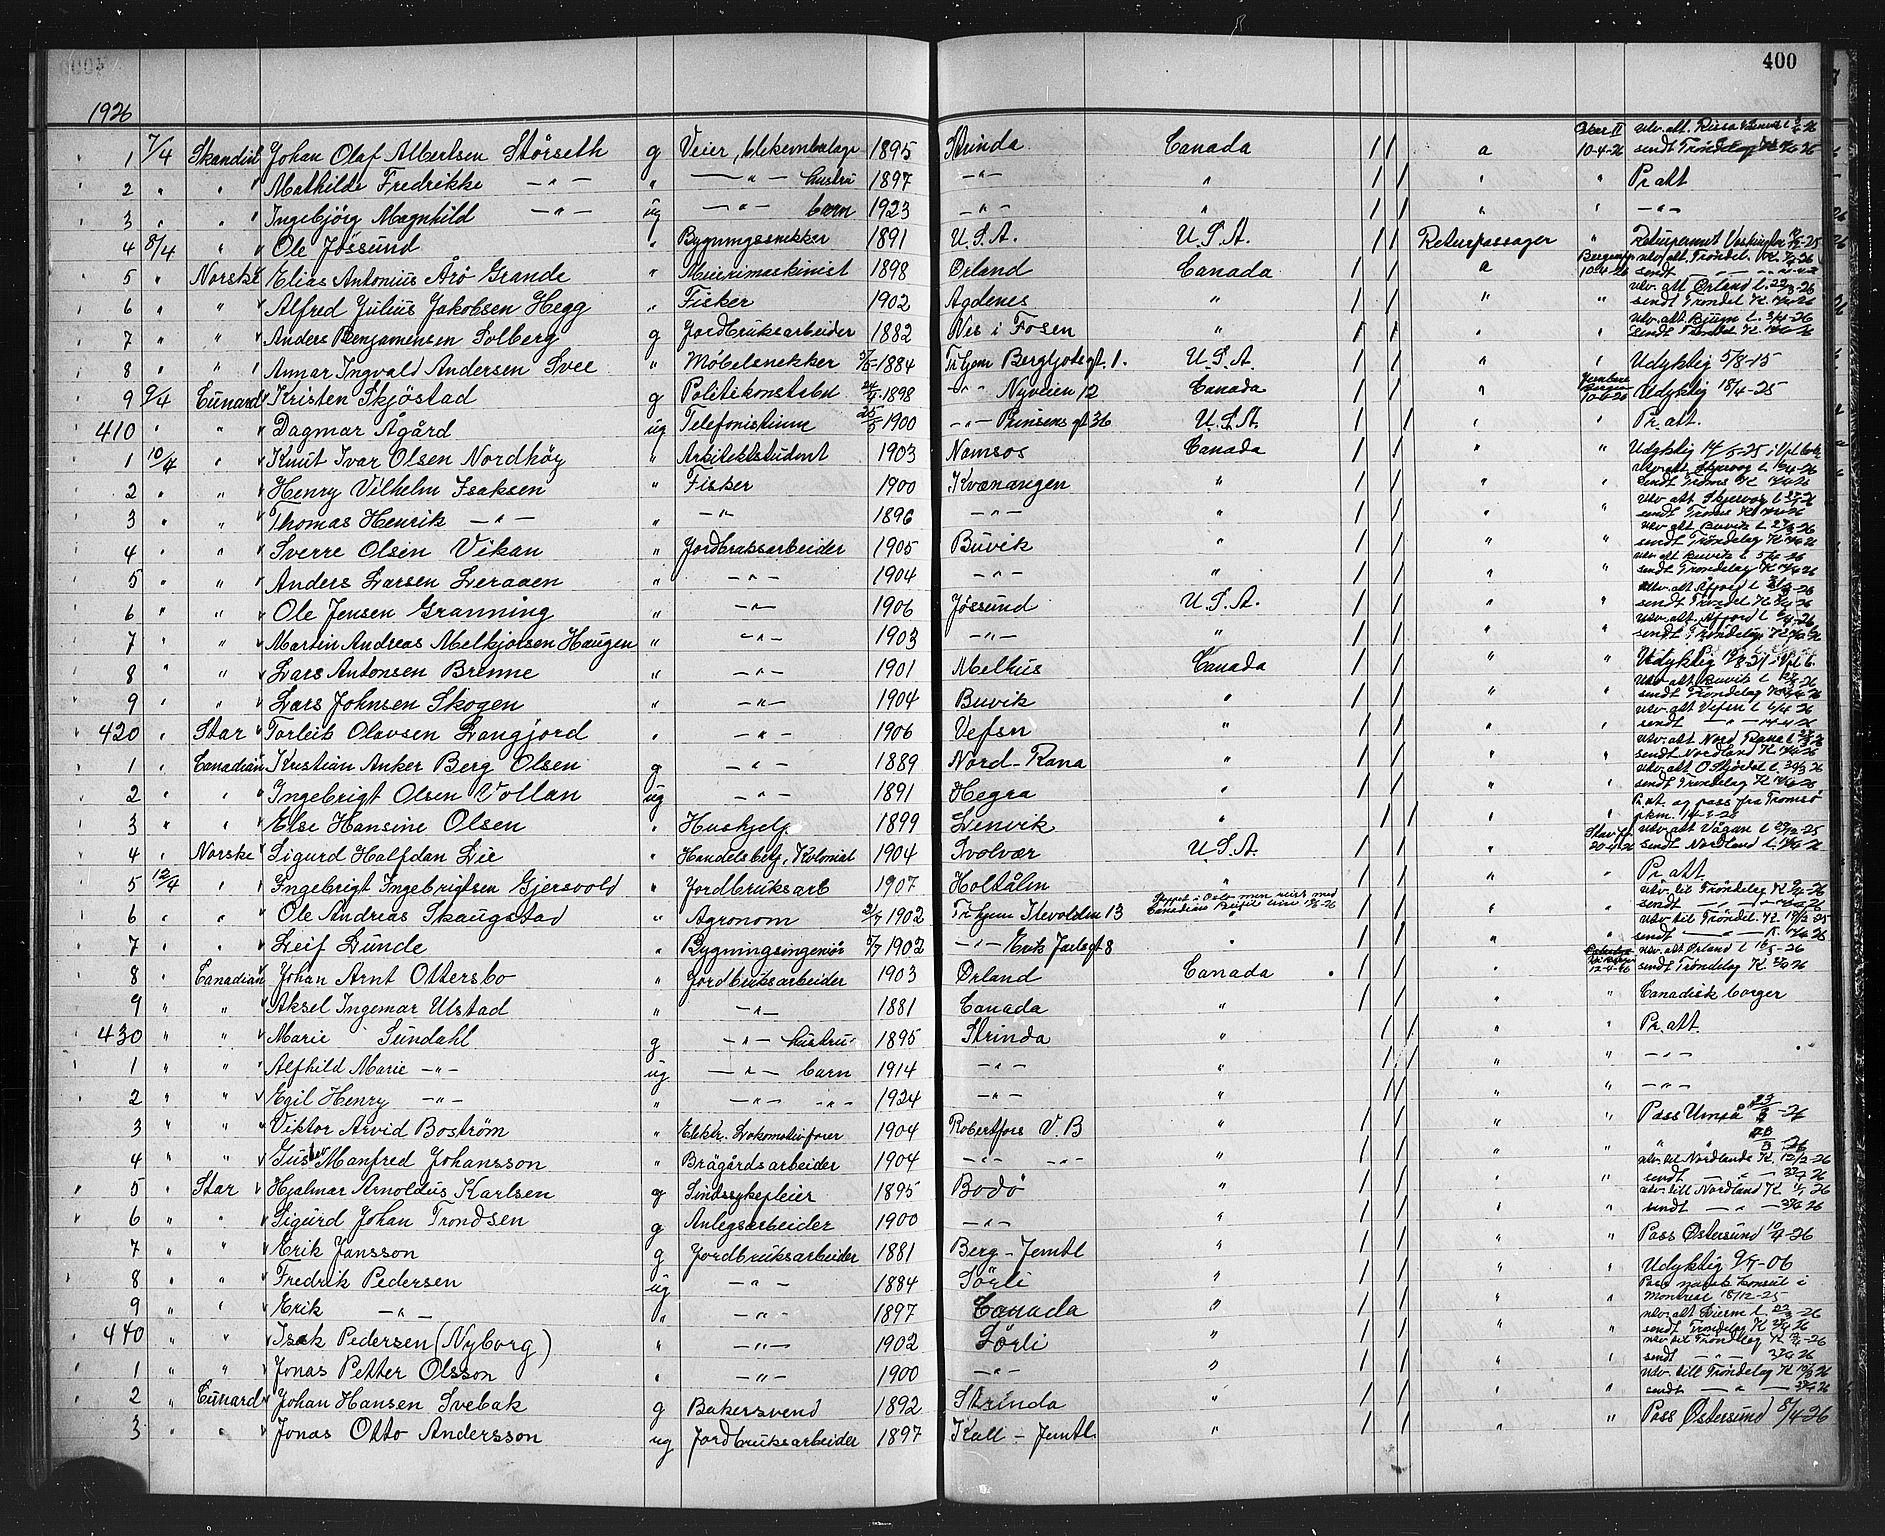 400
1926
1 7/4 Skandia Johan Olaf Albertsen Störseth g Veier, blekemballage 1895 Strinda Canada / / a 10-4-26 utv. att. Rissa
sendt Tröndelag K
2 " " Mathilde Fredrikke —"— " —"— hustru 1897 —"— " / / " " Pr att
3 " " Ingebjörg Magnhild —"— ug —"— barn 1923 —"— " / / " " —"—
4 8/4 " " Ole Jössund " Bygningssnekker 1891 U.S.A. U.S.A. / / Returpassager "
5 " Norske Elias Antonius Årö Grande " Meierimaskinist 1898 Örland Canada / / a 10-4-26 utv. att. Tröndel. K.
sendt
6 " " Alfred Julius Jakobsen Hegg " Fisker 1902 Agdenes " / / " " utv. att Örland l.
sendt Tröndel K.
7 " " Anders Benjaminsen Solberg g Jordbruksarbeider 1882 Nes i Fosen " / / " "
sendt Tröndel K.
8 " " Annar Ingvald Andersen Svee " Möbelsnekker 1884 Tr.hjem Bergljodsgt. 1. U.S.A. / / " " Udyktig 5/8-15
9 9/4 Cunard Kristen Skjöstad g Politikonstabel 1898 —"— Nyveien 12 Canada / / " Udyktig 18/4-25
410 " " Dagmar Ågård ug Telefonistinne 25/5 1900 —"— Prinsens gt 36 U.S.A. / / " " Pr. att.
1 10/4 " Knut Ivar Olsen Nordhöy " Arkitektstudent 1903 Namsos Canada / / " " Udyktig
2 " " Henry Vilhelm Isaksen " Fisker 1900 Kvænangen " / / " " utv. att Skjervöy l.
sendt Troms K
3 " " Thomas Henrik —"— " —"— 1896 —"— " / / " " utv att Skjervöy l
sendt Troms K
4 " " Sverre Olsen Vikan " Jordbruksarbeider 1905 Buvik " / / " " utv att Buvik l.
sendt Tröndelag K
5 " " Anders Larsen Leraaen " —"— 1904 —"— " / / " " utv att Buvik l
sendt Tröndelag K
6 " " Ole Jensen Granning " —"— 1906 Jössund U.S.A. / / " " utv. att Åfjord l
sendt Tröndel. K.
7 " " Martin Andreas Melkjorsen Haugen " —"— 1903 —"— " / / " " utv. att. Åfjord l
sendt Tröndelag K
8 " " Lars Antonsen Brenne " —"— 1901 Melhus Canada / / " " Udyktig
9 " " Lars Johnsen Skogen " —"— 1904 Buvik " / / " " utv. att Buvik l
sendt Tröndelag K
420 " Star Torleib Olavsen Langjord " —"— 1906 Vefsn " / / " " utv. att Vefsn l 6/4 26
sendt —"— 14-4-26
1 " Canadian Kristian Anker Berg Olsen g —"— 1889 Nord-Rana " / / " " utv. att Nord Rana l
sendt Nordland K
2 " " Ingebrigt Olsen Vollan ug —"— 1891 Hegra " / / " " utv. att Ö Stjördal l
sendt Tröndelag K
3 " " Else Hansine Olsen " Hushjelp 1899 Lenvik " / / " " Pr att. og pass fra Tromsö
pkm.
4 " Norske Sigurd Halfdan Lie " Handelsbetj., Kolonial 1904 Svolvær U.S.A. / / " 20-4-26 utv. att Vågan l
sendt Nordland l.
5 12/4 " Ingebrigt Ingebrigtsen Gjersvold " Jordbruksarb 1907 Holtålen " / / " " Pr. att
6 " " Ole Andreas Skaugstad " Agronom 1902 Tr.hjem Ilevolden 13 Stoppet i Oslo men reist med
Canadian Pacific Line / / " " utv. til Tröndelag K
sendt —"—
7 " " Leif Lunde " Bygningsingeniör 1902 —"— Erik Jarlsgt 8 " / / " " utv til Tröndel. K.
sendt —"—
8 " Canadian Johan Arnt Ottersbo " Jordbruksarbeider 1903 Örland Canada / / " 12-4-26 utv. att Örland l
sendt Tröndelag K.
9 " " Aksel Ingemar Ulstad " —"— 1881 Canada " / / " " Canadisk borger
430 " " Marie Sundahl g —"— hustru 1895 Strinda " / / " " Pr. att
1 " " Alfhild Marie —"— ug —"— barn 1914 —"— " / / " " —"—
2 " " Egil Henry —"— " —"— —"— 1924 —"— " / / " " —"—
3 " " Viktor Arvid Boström " Elektr. Lokomotivförer 1904 Robertfors V.B " / / " " Pass Umeå 23/3-26
4 " " Gustav Manfred Johansson " Brägårdsarbeider 1904 —"— —"— " / / " " " "
5 " Star Hjalmar Arnoldus Karlsen g Sindssykepleier 1895 Bodö " / / " " utv. til Nordlands K. 12/2-26
sendt —"—
6 " " Sigurd Johan Trondsen g Anlegsarbeider 1900 —"— " / / " " utv. till Nordland K
sendt —"—
7 " " Erik Jansson g Jordbruksarbeider 1881 Berg-Jemtl " / / " " Pass Östersund 10/4-26
8 " " Fredrik Pedersen ug —"— 1884 Sörli " / / " " Udyktig
9 " " Erik —"— " —"— 1897 Canada " / / " " Pass norsk konsul i
Montreal 18/12-25
440 " " Isak Pedersen (Nyborg) " —"— 1902 Sörli " / / " " utv. att Lierne l
sendt Tröndelag K
1 " " Jonas Petter Olsson " —"— 1900 —"— " / / " " utv til Tröndelag K
sendt —"—
2 " Cunard Johan Hansen Svebak g Bakersvend 1892 Strinda " / / " " utv. till Tröndelag K
sendt —"—
3 " " Jonas Otto Andersson ug Jordbruksarbeider 1897 Kall-Jemtl. " / / " " Pass Östersund 8/4-26